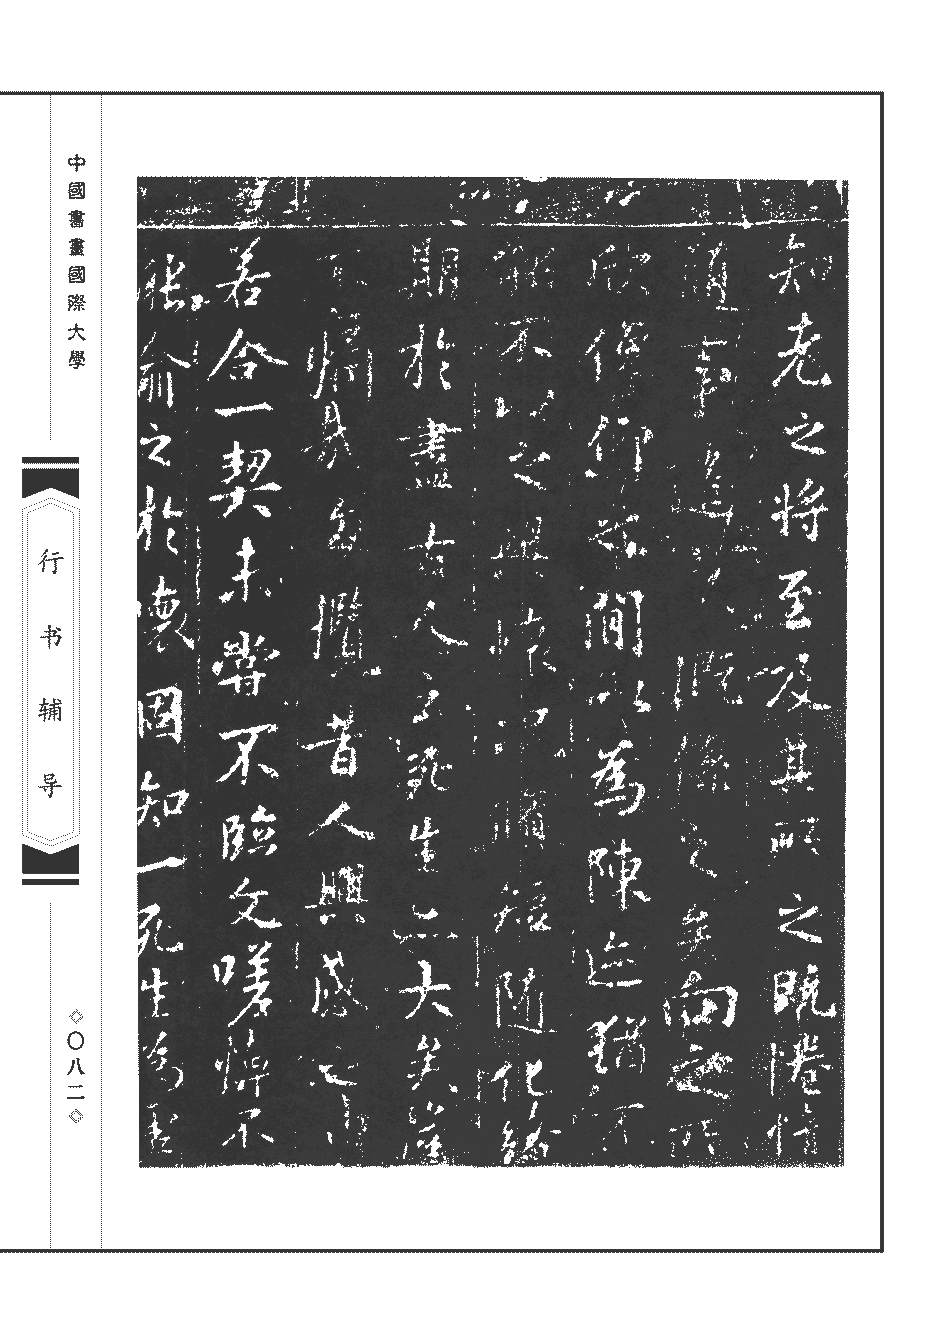 知老之將至及其所之既惓情
隨事遷感慨係之矣向之所
欣俛仰之間以為陳迹猶不
能不以之興懷況脩短隨化終
期於盡古人云死生亦大矣豈
不痛哉每攬昔人興感之由
若合一契未嘗不臨文嗟悼不
能喻之於懷固知一死生為虛
中國書畫國際大學
行书辅导
◇〇八二◇